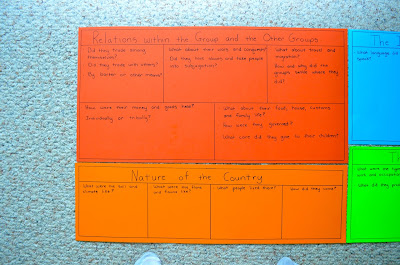 Relations within the Group and the Other Groups
Did they trade among
themselves?
Did they trade with others?
By barter or other means?
What about their wars and conquests?
Did they take slaves and take people
into subjugation?
What about travel and
migration?
How and why did the
groups settle where they
did?
How were their money and goods held?
Individually or tribally?
What about their food, homes, customs
and family life?
How were they governed?
What care did they give to their children?
Nature of the Country
What were the soil and
climate like?
What were the flora
and fauna like?
What people lived there?
How did they come?
The
What language
T
What were the
What did they